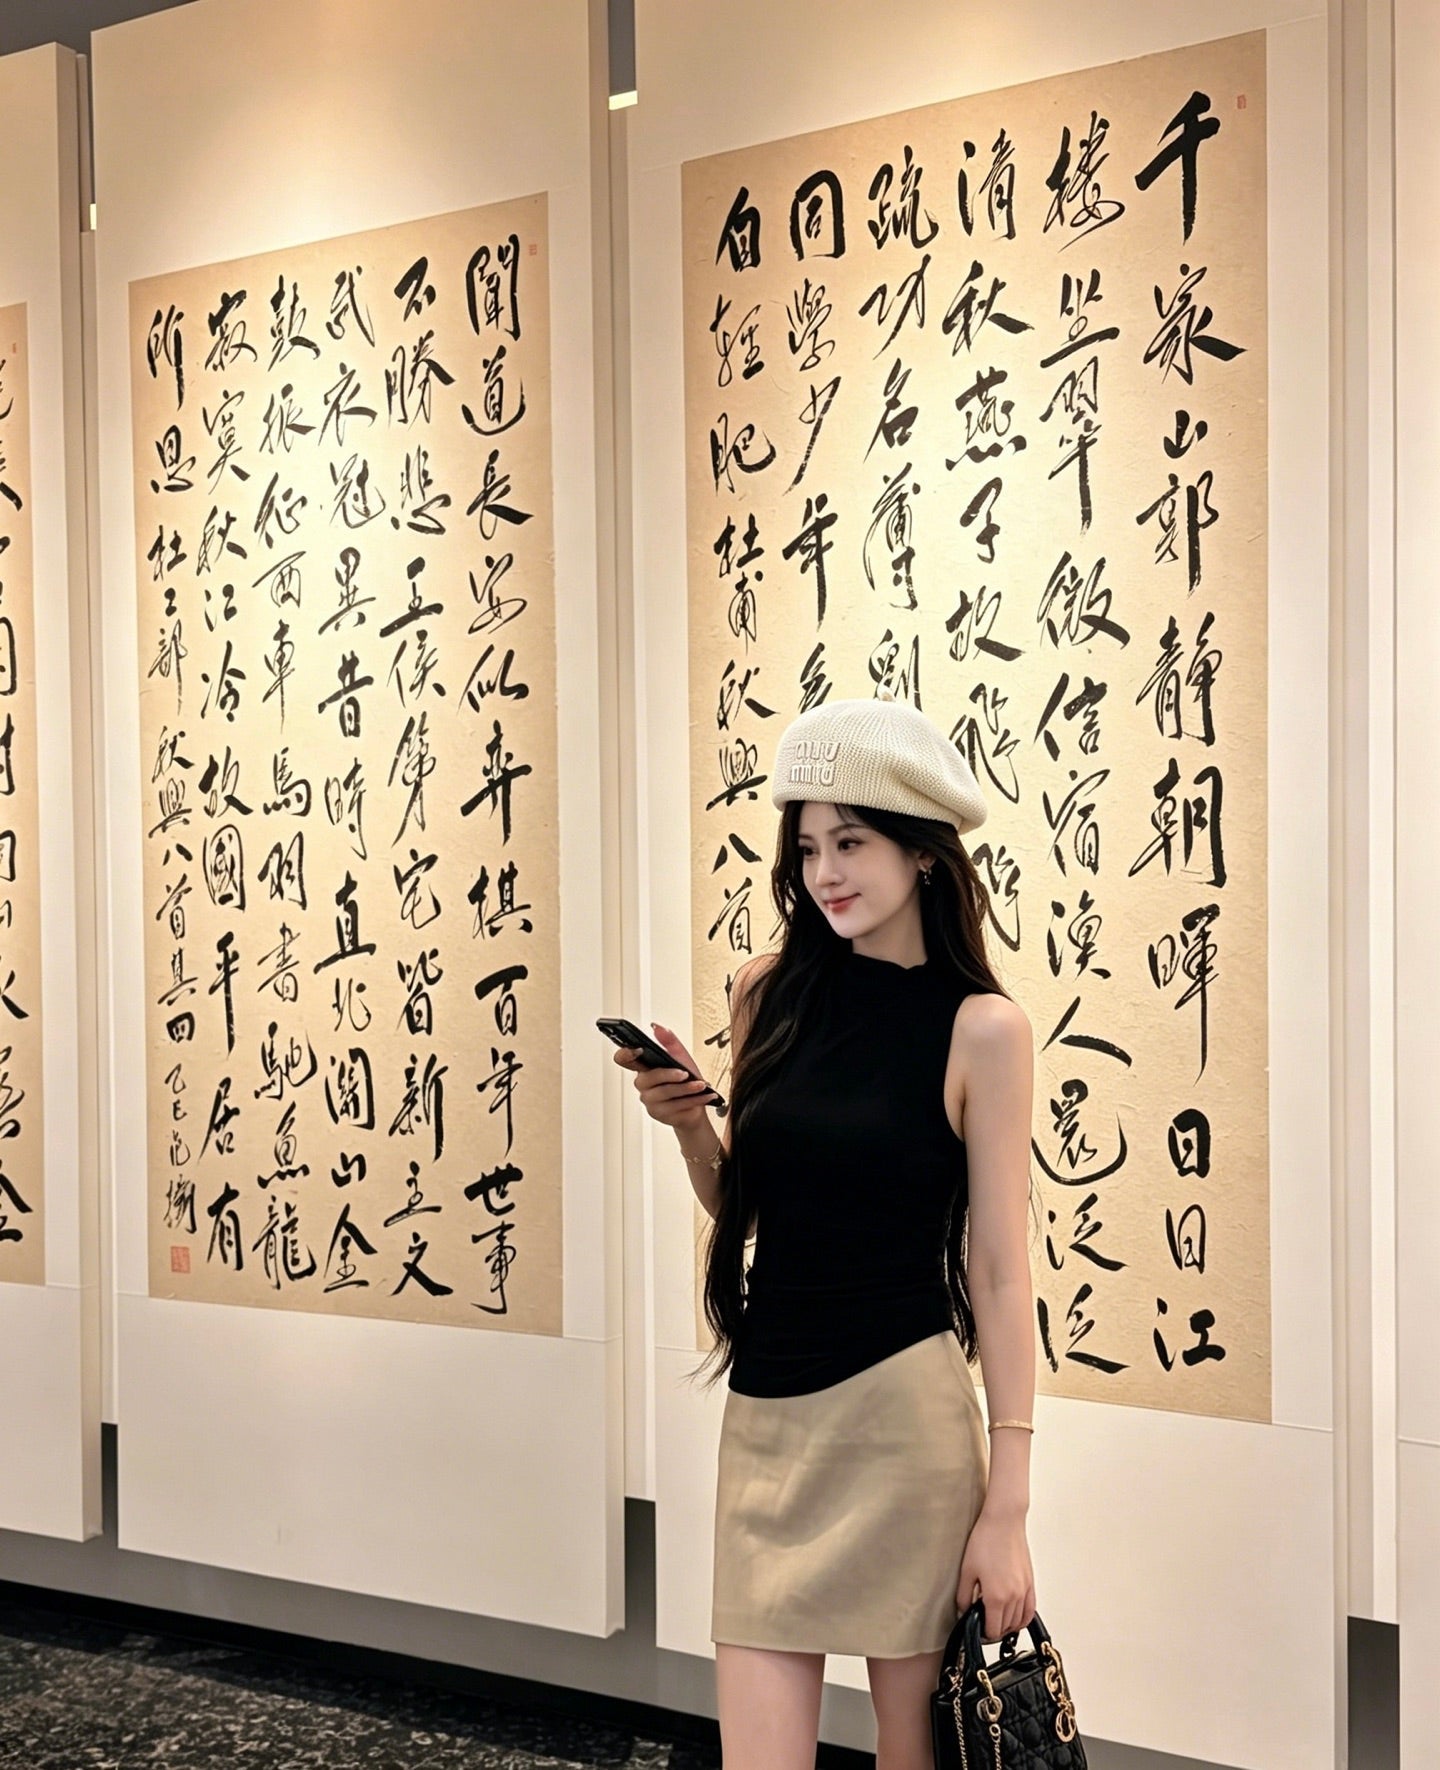 千家山郭静朝暉日日江
楼坐翠微信宿漁人還泛泛
清秋燕子故飛飛
疏功名薄劉
同學少年多
自輕肥杜甫秋興八首
聞道長安似弈棋百年世事
不勝悲王侯第宅皆新主文
武衣冠異昔時直北關山金
鼓振征西車馬羽書馳魚龍
寂寞秋江冷故國平居有
所思杜工部秋興八首其四乙巳范